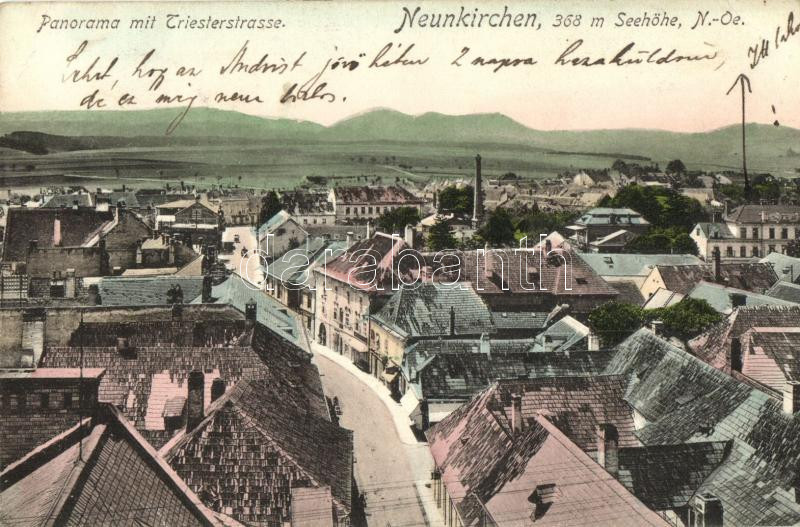 Panorama mit Triesterstrasse.
Neunkirchen, 368 m Seehöhe, N.-Oe.
Lehet, hogy az Andrist jövö héten 2 napra hazaküldöm,
de ez még nem biztos.
darabanth